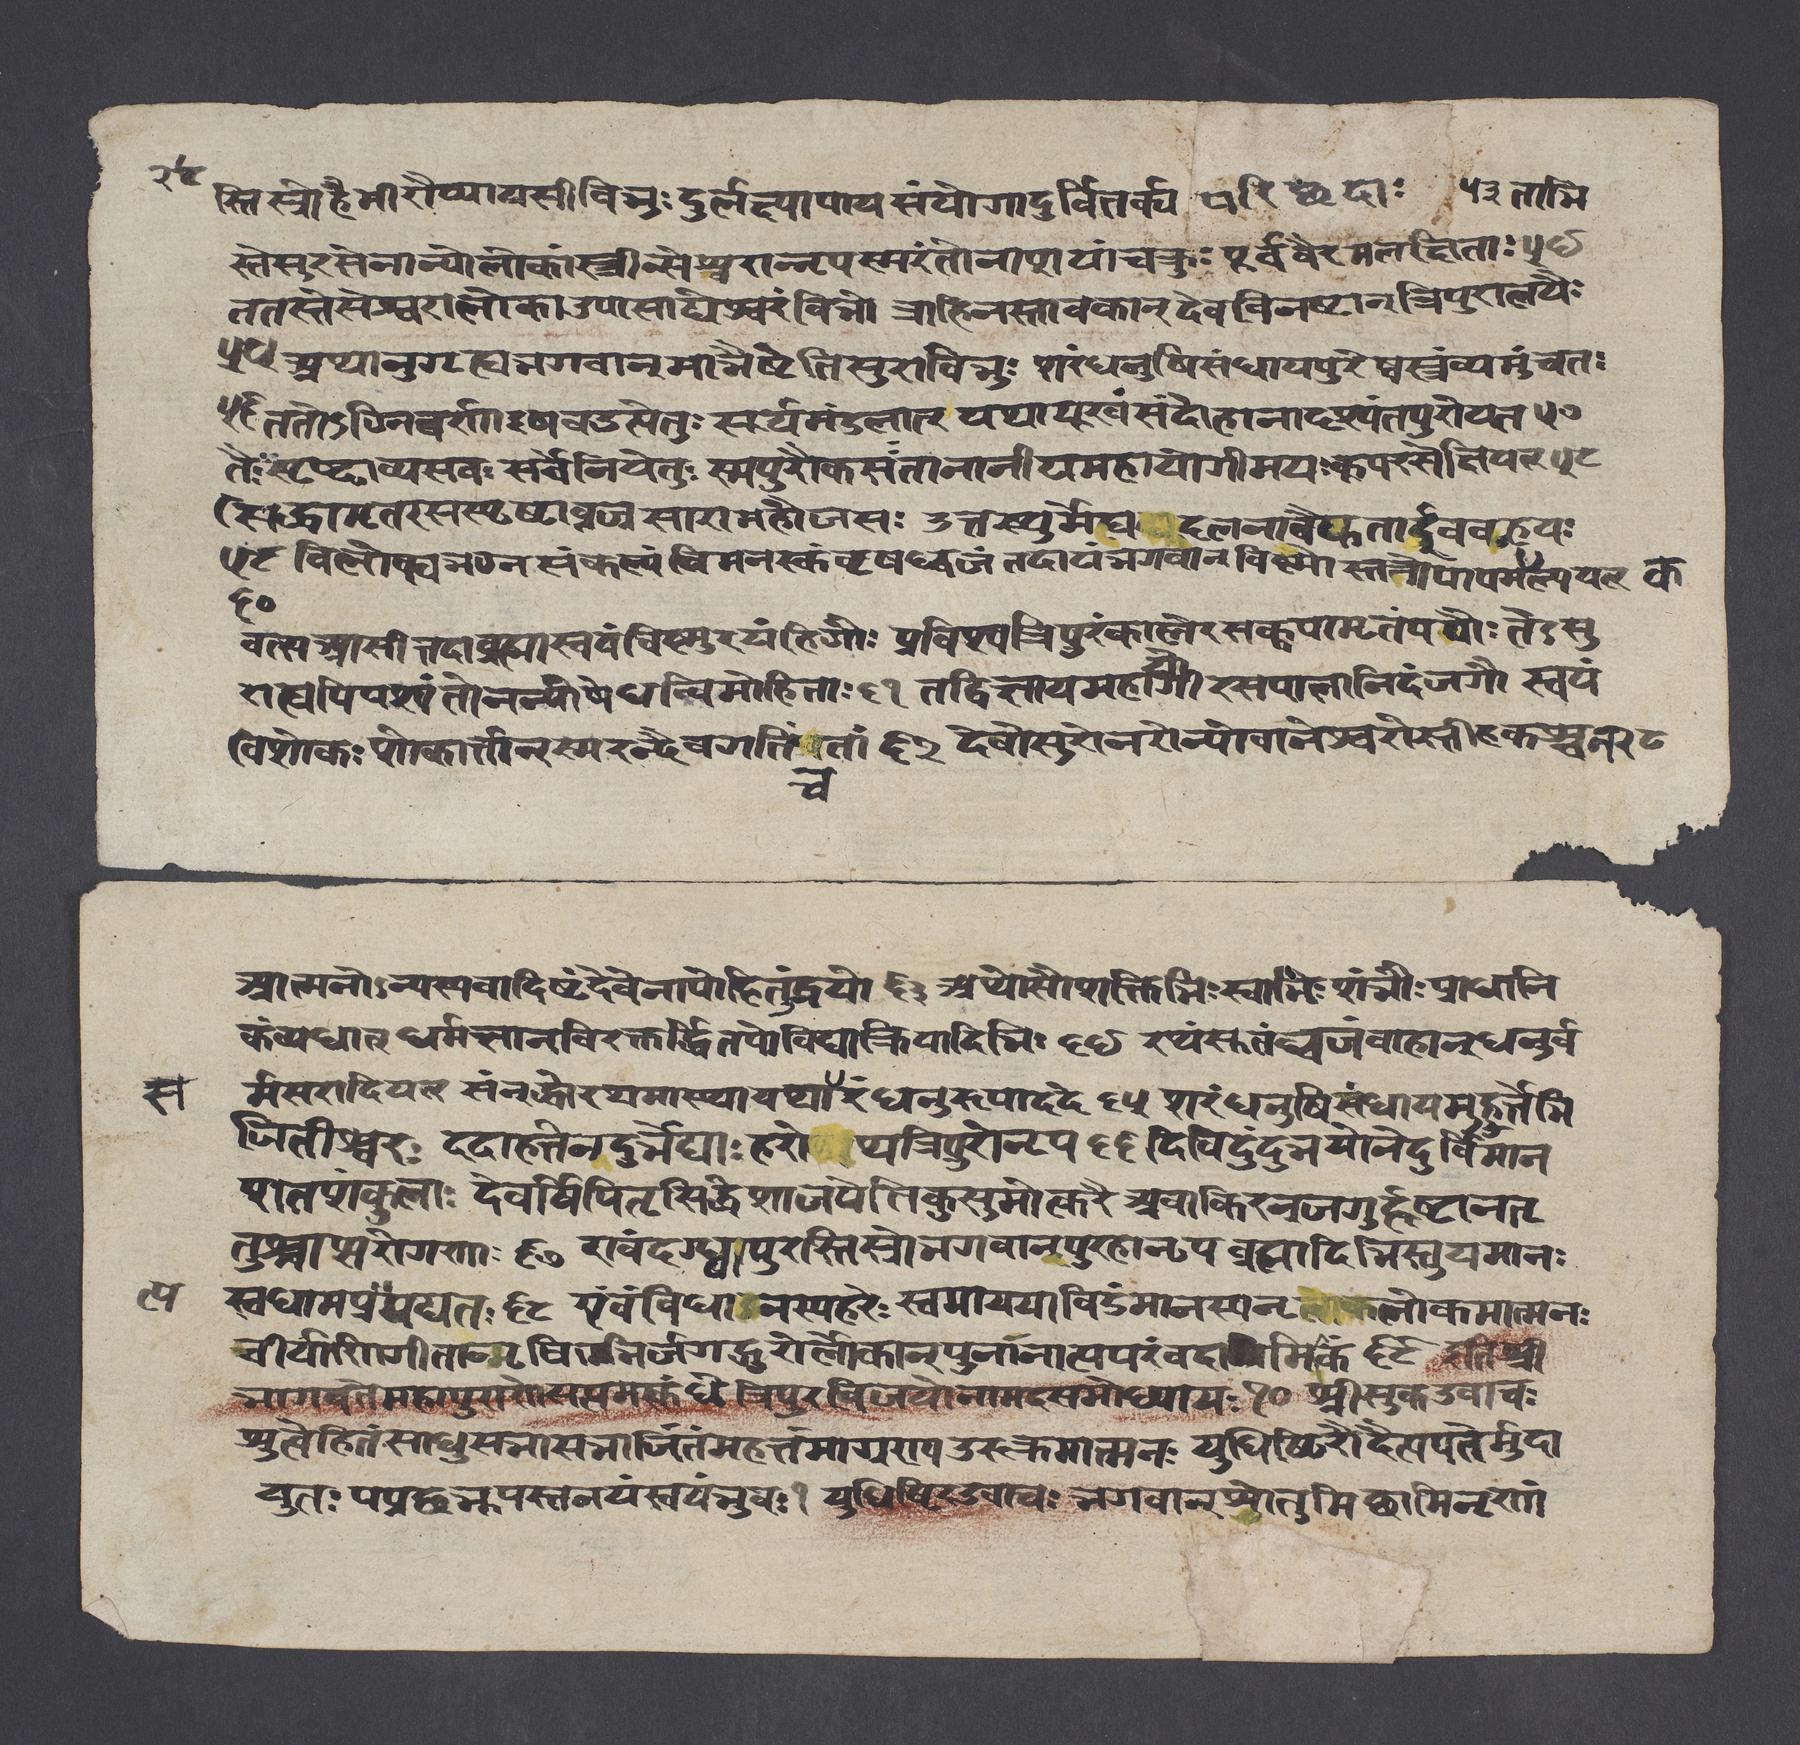 २८
स्तिस्रोहैमीरौप्यायसीविभुः दुर्लक्ष्यापायसंयोगादुर्वितर्क्य परिछदाः ५३ ताभि
स्तेसुरसेनान्योलोकांस्त्रीन्सेश्वरान्नृपस्मरंतोनाशयांचक्रुः पूर्ववैरमलक्षिताः ५४
ततस्तेसेश्वरालोकाउपासाद्येश्वरंविभो त्राहिनस्तावकान्देवविनष्टान्त्रिपुरालयैः
५५ अथानुगृह्यभगवान्माभैष्टेतिसुराविभुः शरंधनुषिसंधायपुरेष्वस्त्रंव्यमुंचतः
५६ ततोऽग्निवर्णाइषवउत्पेतुः सूर्यमंडलात् यथायूखसंदोहानादृश्यंतपुरोयत ५७
तैःस्पृष्टाव्यसवः सर्वेनिपेतुः स्मपुरौकसंतानानीयमहायोगीमयःकूपरसेक्षिपत् ५८
सिद्धामृतरसस्पृष्टावज्रसारामहौजसः उत्तस्थुर्मेघदलनावैद्युताइववह्नयः
५९ विलोक्यभग्नसंकल्पंविमनस्कंवृषध्वजं तदायंभगवान्विष्णोस्तत्रोपायमकल्पयत् क
६०
वत्सआसीत्तदाब्रह्मास्वयंविष्णुरयंहिगौः प्रविश्यत्रिपुरंकालेरसकूपामृतंपपौः तेऽसु
राह्यपिपश्यंतोनन्यषेधन्विमोहिताः ६१ तद्वित्तायमहायोगीरसपालानिदंजगौ स्वयं
विशोकः शोकार्त्तान्स्मरन्दैवगतिंचतां ६२ देवोसुरोनरोन्योवानेश्वरोस्तीहकश्चन २८
च
आत्मनोऽन्यस्यवादिष्टंदैवेनापोहितुंद्वयो ६३ अथोसौशक्तिभिःस्वाभिः शंभोः प्राधानि
कंव्यधात् धर्मज्ञानविरक्तर्द्धितपोविद्याक्रियादिभिः ६४ रथंसूतंध्वजंवाहान्धनुर्व
र्मसरादियत् संनद्धोरथमास्थायशरंधनुरूपाददे ६५ शरंधनुषिसंधायमुहूर्त्तेभि
स
जितीश्वरः ददाहतेनदुर्भेद्याः हरोथत्रिपुरोनृप ६६ दिविदुंदुभयोनेदुर्विमान
शतशंकुलाः देवर्षिपितृसिद्धेशाजयेतिकुसुमोत्करै अवाकिरन्जगुर्हृष्टाननृ
तुश्चाप्सरोगणाः ६७ एवंदग्ध्वापुरस्तिस्रोभगवान्पुरहानृप ब्रह्मादिभिस्तुयमानः
त्य स्वधामप्रंपद्यतः ६८ एवंविधान्यस्यहरेः स्वमाययाविडंमानस्यनृलोकमात्मनः
वीर्याणिगीतान्यृषिभिर्जगद्गुरोर्लोकान्पुनानान्यपरंवदामिकिं ६९ इतिश्री
भागवतेमहापुराणेसप्तमस्कंधेत्रिपुरविजयोनामदसमोध्यायः १० श्रीसुकउवाचः
श्रुत्वेहितंसाधुसभासभाजितंमहत्तमाग्रण्यउरुक्रमात्मनः युधिष्ठिरोदैत्यपतेर्मुदा
युतः पप्रछभूपस्तनयंस्वयंभुवः १ युधिष्ठिरउवाचः भगवान्श्रोतुमिछामिनृणां